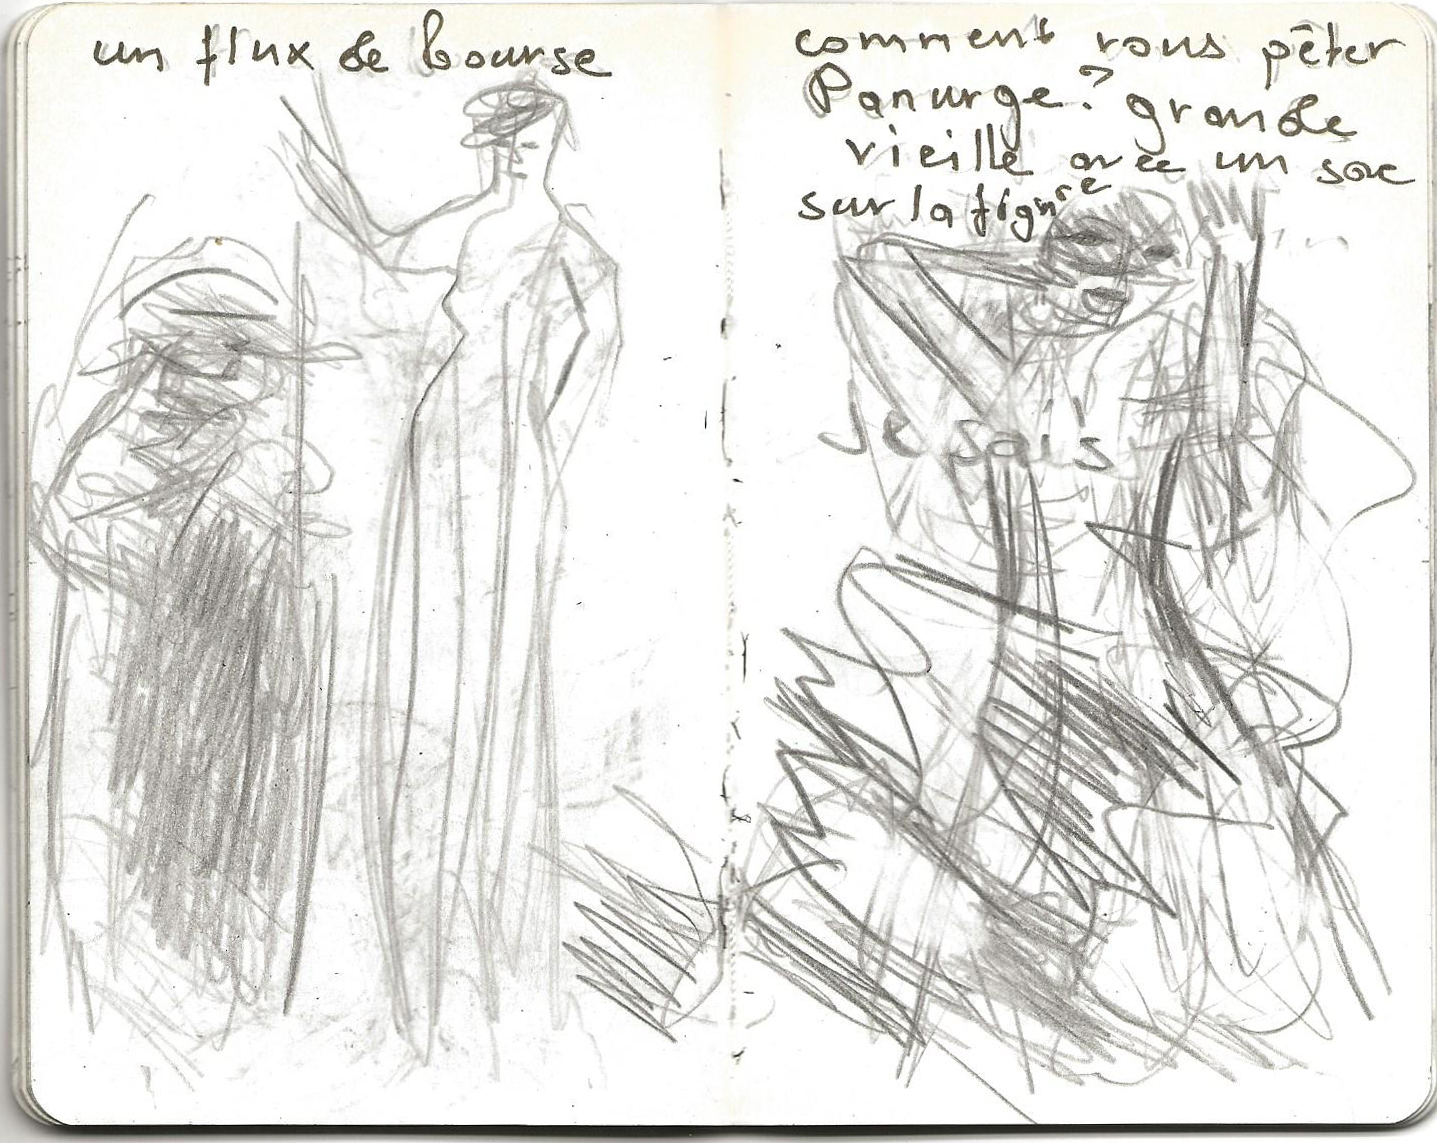 un flux de bourse
comment vous pêter
Panurge? grande
vieille avec un sac
sur la figure
Je sais